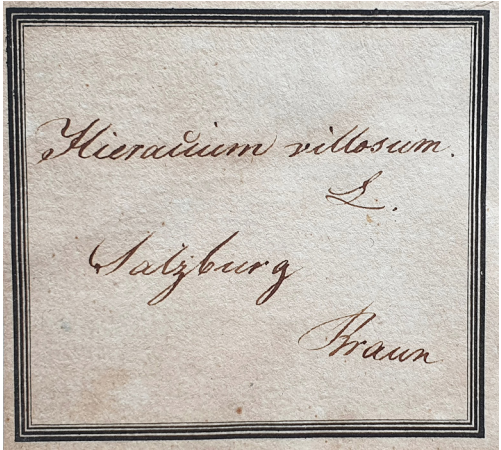 Hieracium villosum.
L.
Salzburg
Braun